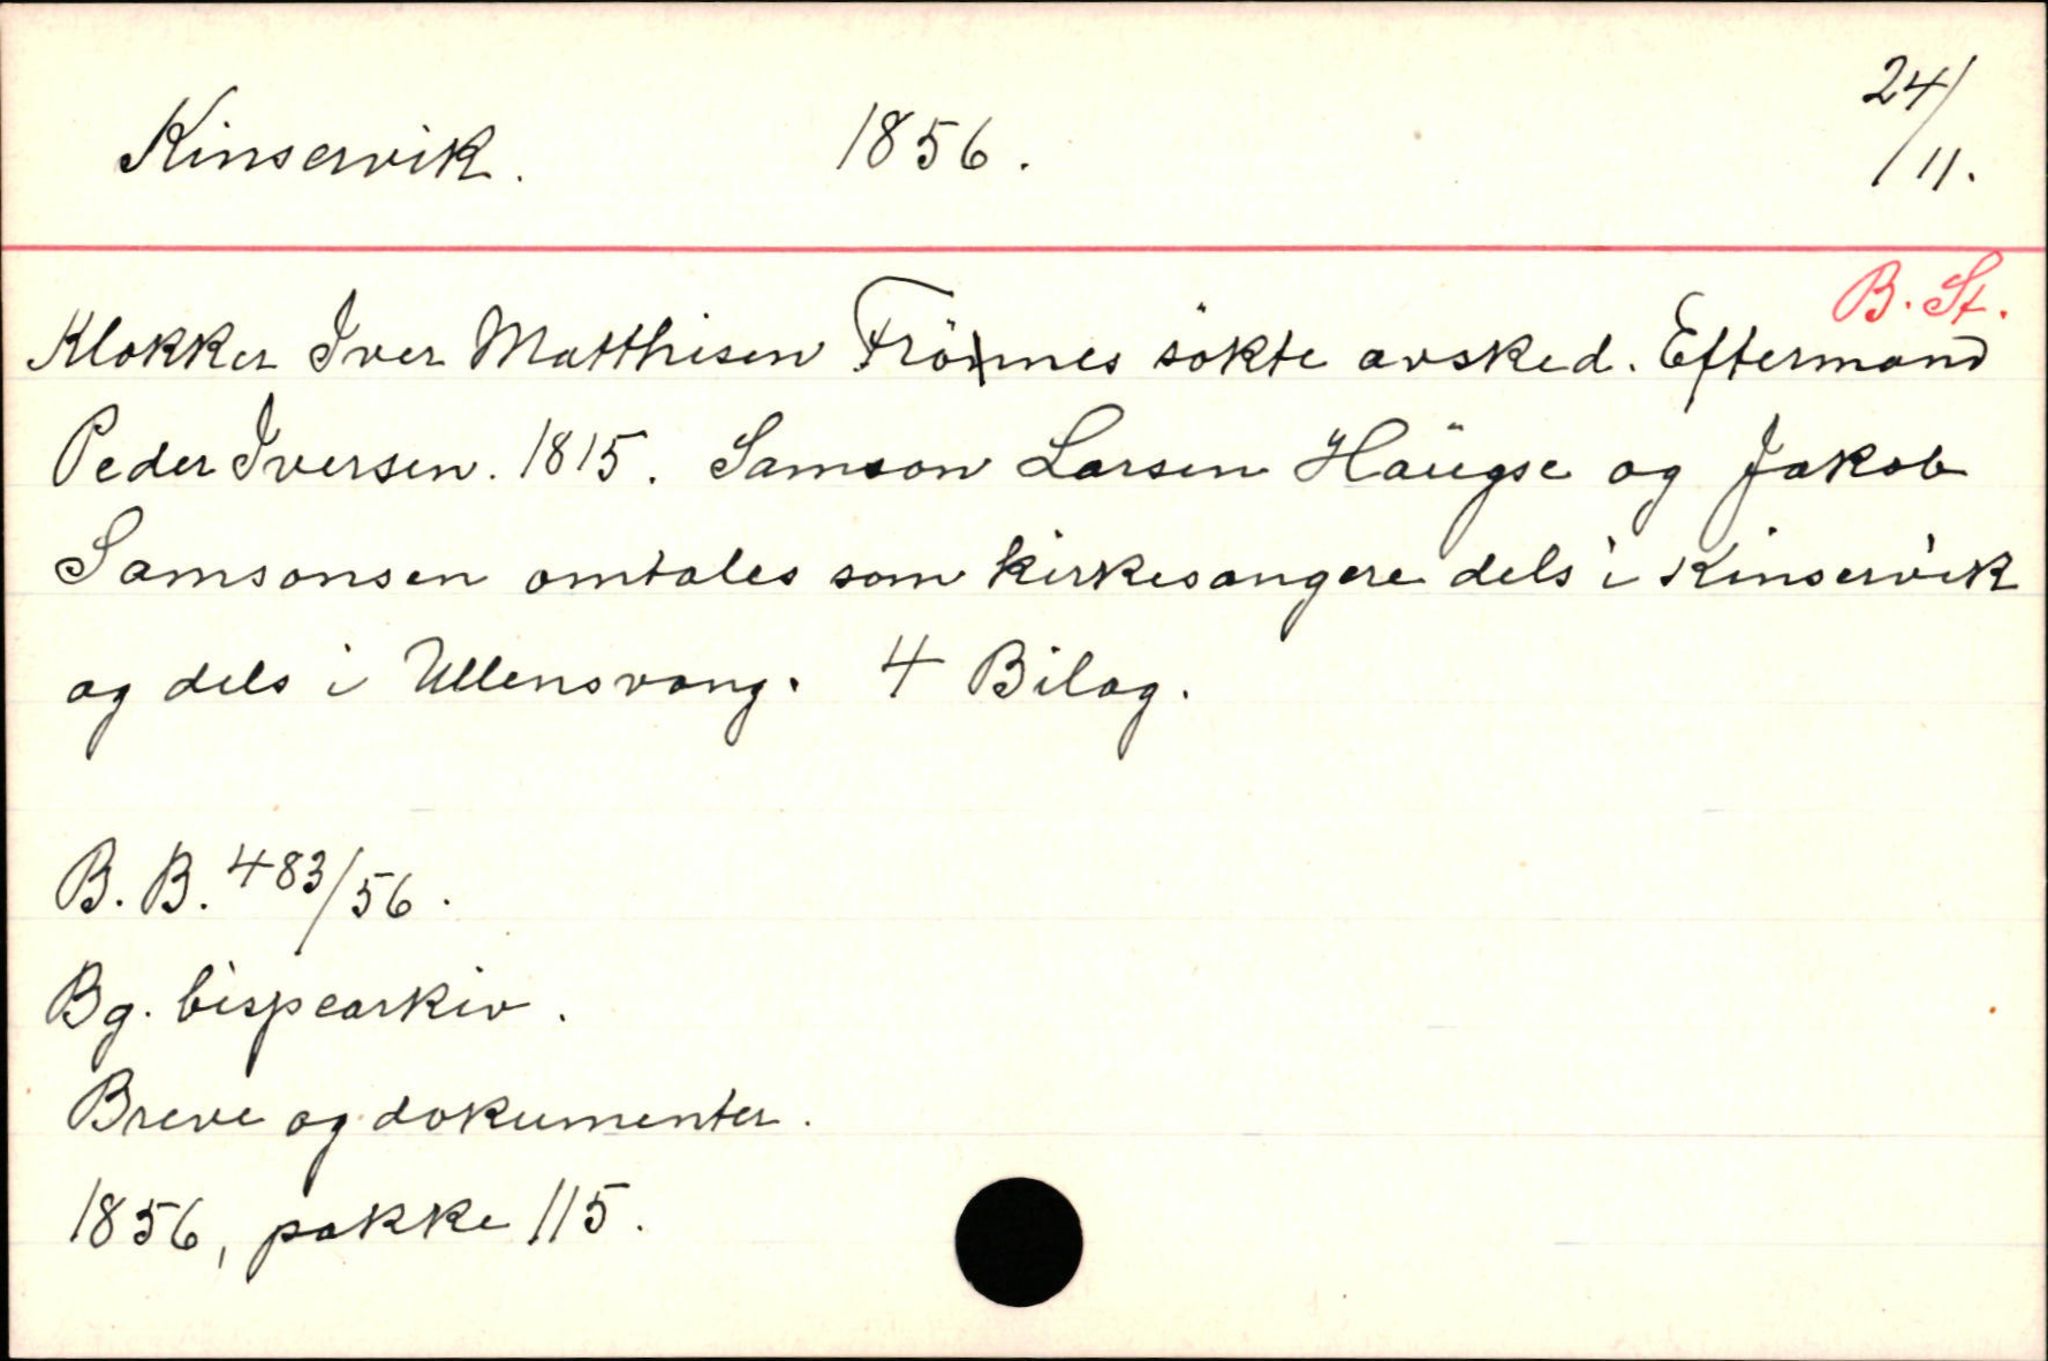 Kinservik. 1856. 24/11.
B. St.
Klokker Iver Matthisen Frönnes sökte avsked. Eftermand
Peder Iversen. 1815. Samson Larsen Häugse og Jakob
Samsonsen omtales som kirkesangere dels i Kinservik
og dels i Ullensvang. 4 Bilag.
B. B. 483/56.
Bg. bispearkiv.
Breve og dokumenter.
1856, pakke 115.